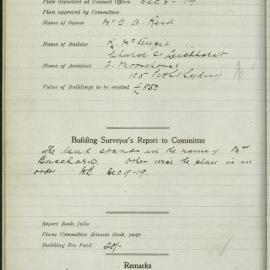 Plan deposited at Council Offices Dec 8-19
Plan approved by Committee
Name of Owner Mr D A Reid
Name of Builder R McTeague
Church St Leichhardt
Name of Architect J. Moorehouse
105 Pitt St Sydney
Value of Buildings to be erected £850
Building Surveyor's Report to Committee
The land stands in the name of Mr
otherwise the plan is in
order Dec 9-19.
Report Book, folio
Plans Committee Minute Book, page
Building Fee Paid 20/-
Remarks